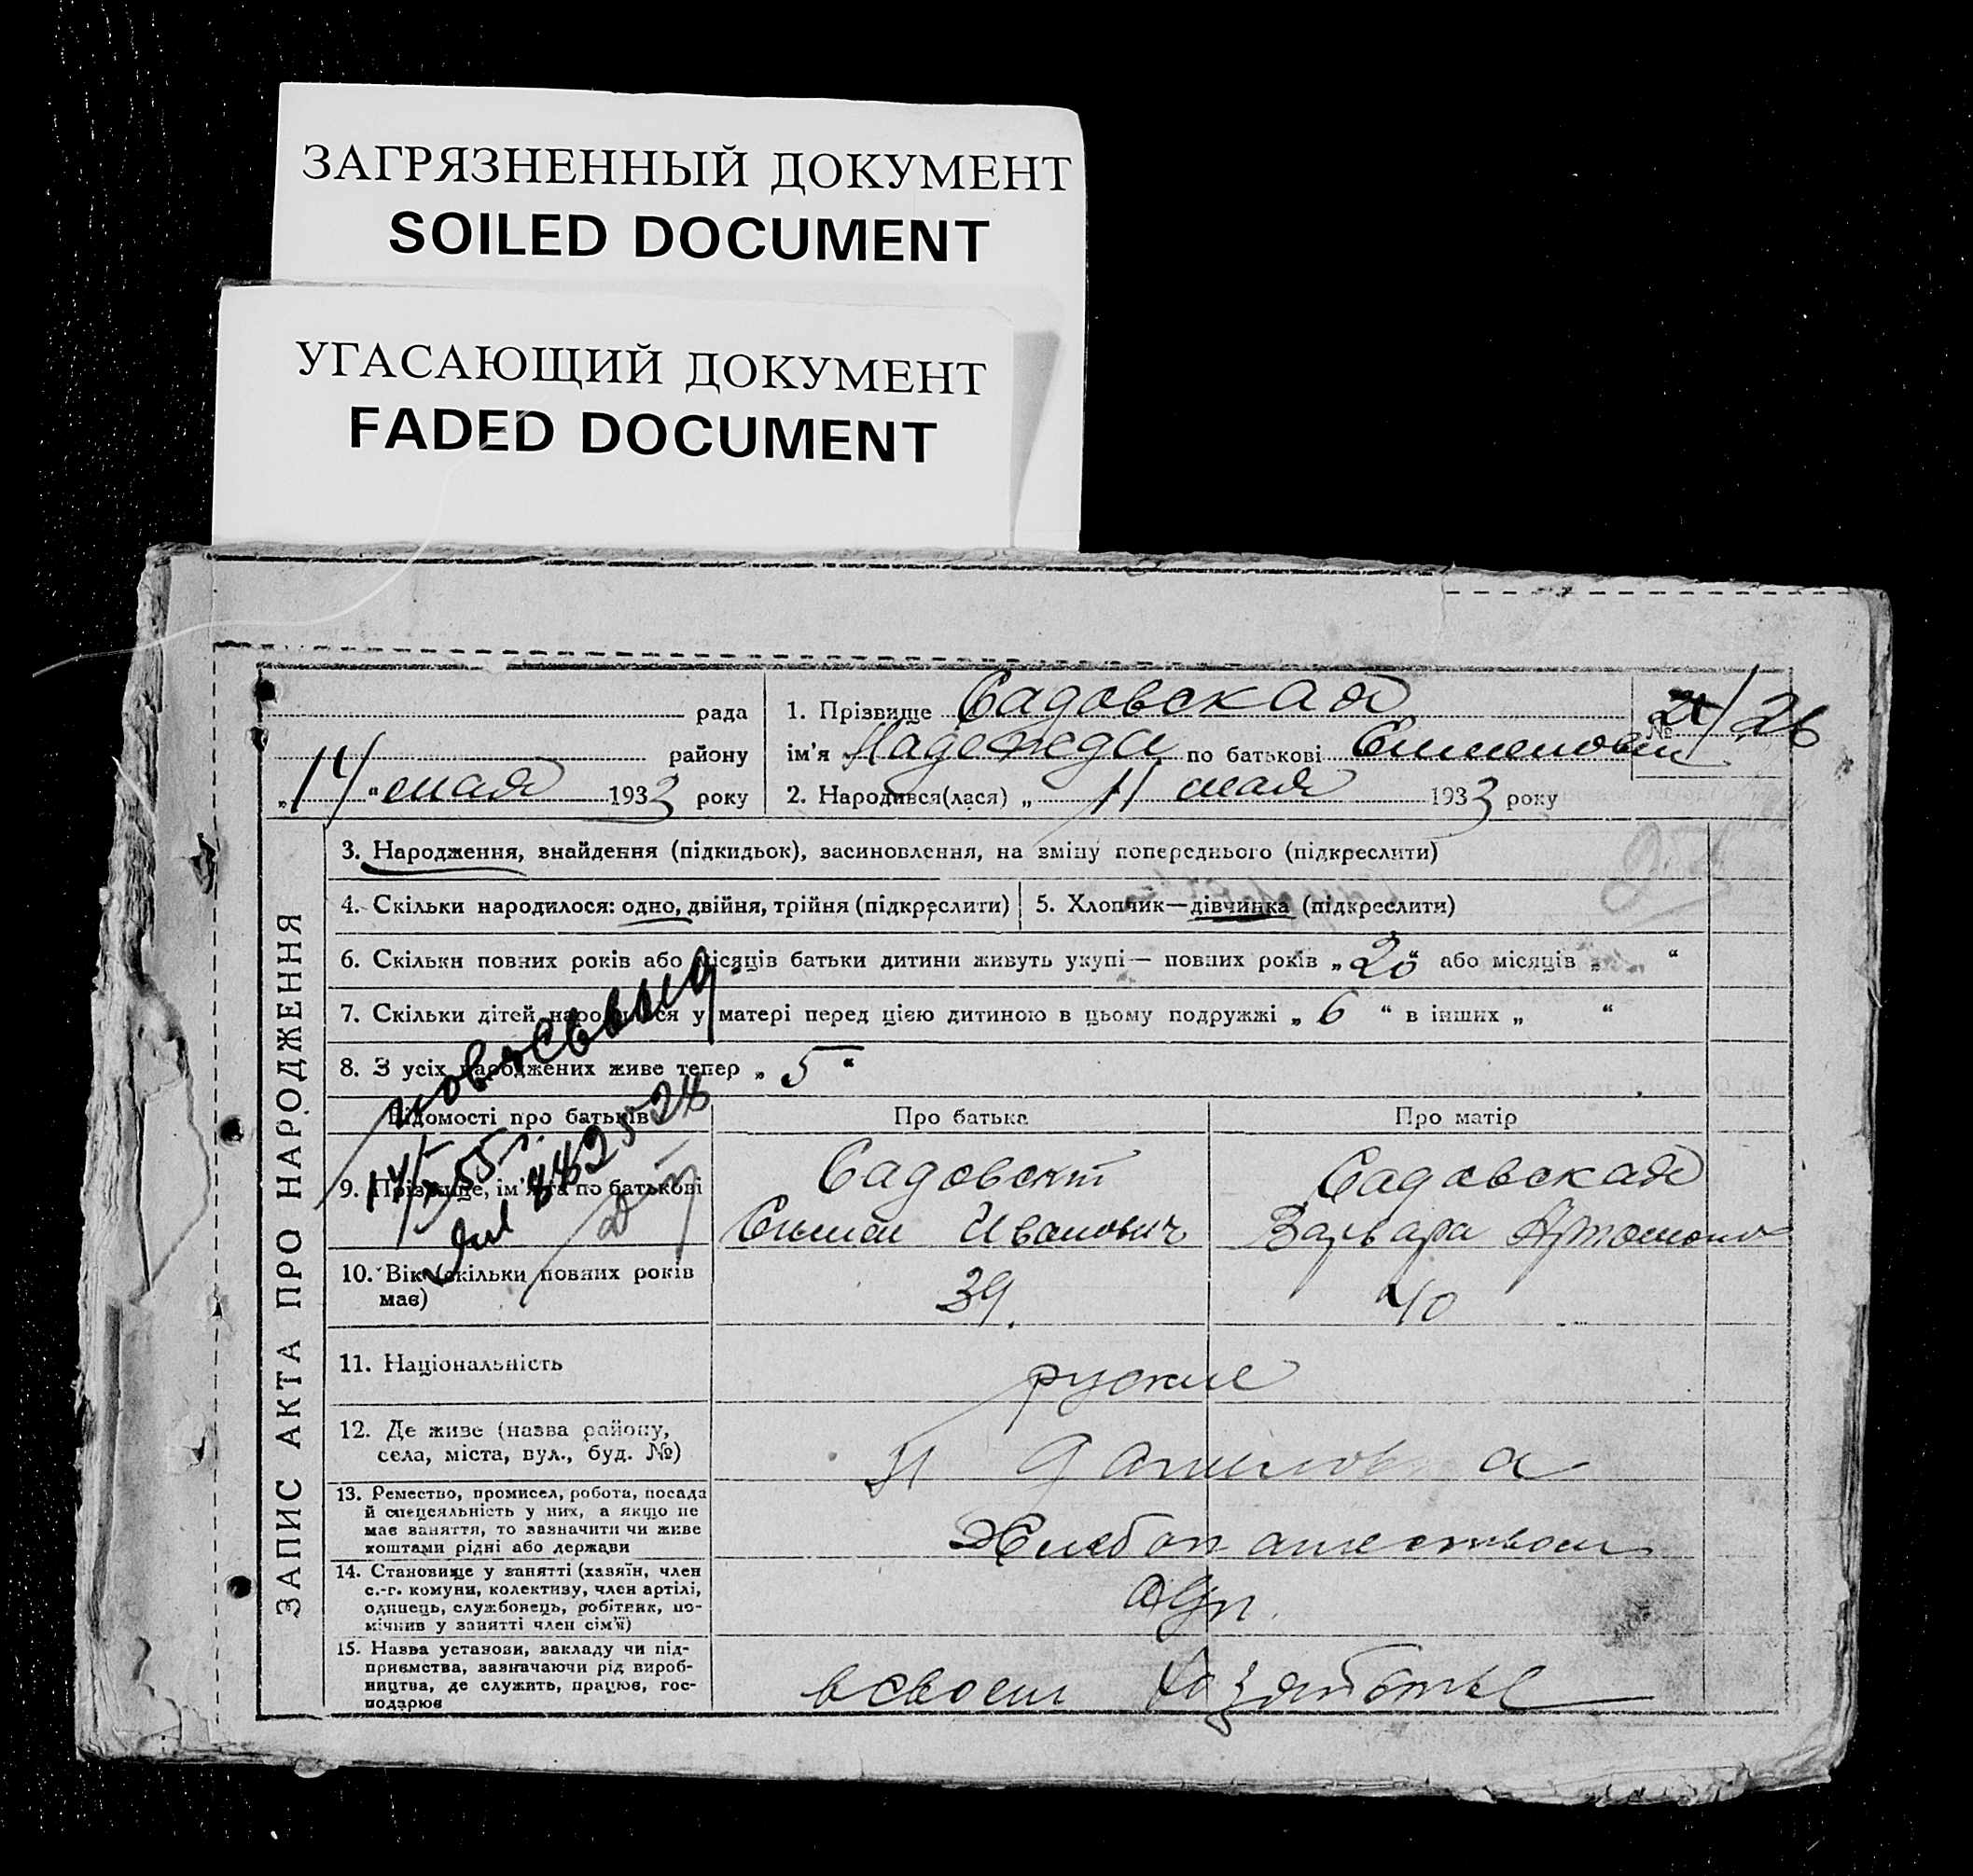 ЗАГРЯЗНЕННЫЙ ДОКУМЕНТ
SOILED DOCUMENT
УГАСАЮЩИЙ ДОКУМЕНТ
FADED DOCUMENT
рада
району
„14“ мая 1933 року
1. Прізвище Садовская
ім'я Надежда по батькові Сименовн
2. Народився(лася) „ 11 мая 1933 року
№ 26
ЗАПИС АКТА ПРО НАРОДЖЕННЯ
3. Народження, знайдення (підкидьок), засиновлення, на зміну попереднього (підкреслити)
4. Скільки народилося: одно, двійня, трійня (підкреслити)
5. Хлопчик—дівчинка (підкреслити)
6. Скільки повних років або місяців батьки дитини живуть укупі — повних років „20“ або місяців „ “
7. Скільки дітей народилося у матері перед цією дитиною в цьому подружжі „ 6 “ в інших „ “
8. З усіх народжених живе тепер „ 5 “
Відомості про батьків
Про батька
Про матір
9. Прізвище, ім'я та по батькові
Садовский
Симен Иванович
Садовская
Варвара Артомоно
10. Вік (скільки повних років має)
39.
40
11. Національність
руские
12. Де живе (назва району,
села, міста, вул., буд. №)
13. Ремество, промисел, робота, посада
й спеціяльність у них, а якщо не
має заняття, то зазначити чи живе
коштами рідні або держави
Хлебопашеством
14. Становище у занятті (хазяїн, член
с.-г. комуни, колективу, член артілі,
одинець, службовець, робітник, по-
мічник у занятті член сім'ї)
15. Назва установи, закладу чи під-
приємства, зазначаючи рід вироб-
ництва, де служить, працює, гос-
подарює
в своем хозяйстве